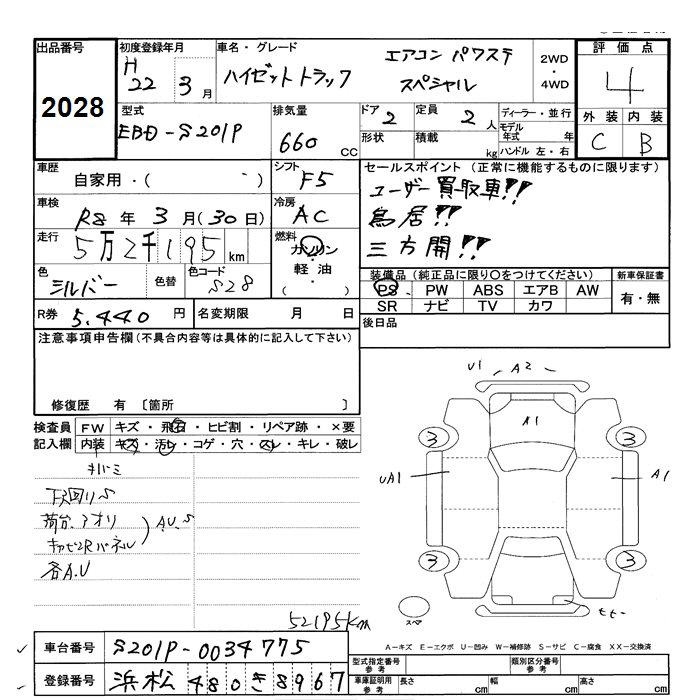 出品番号
2028
初度登録年月
H 22 3 月
車名・グレード
ハイゼットトラック
エアコン パワステ
スペシャル
2WD
・
4WD
評価点
4
外装 内装
C B
型式
EBD-S201P
排気量
660 cc
ドア 2
形状
定員 2 人
積載 kg
ディーラー・並行
モデル年式 年
ハンドル 左・右
車歴
自家用・( )
シフト
F5
車検
R8 年 3 月(30日)
冷房
AC
走行
5万2千195 km
燃料
ガソリン
・
軽油
・
( )
色
シルバー
色替
色コード
S28
R券 5,440 円
名変期限 月 日
セールスポイント (正常に機能するものに限ります)
ユーザー買取車!!
鳥居!!
三方開!!
装備品(純正品に限り〇をつけてください)
PS PW ABS エアB AW
SR ナビ TV カワ
新車保証書
有・無
後日品
注意事項申告欄(不具合内容等は具体的に記入して下さい)
修復歴 有 〔箇所 〕
検査員記入欄
FW キズ・飛石・ヒビ割・リペア跡・×要
内装 キズ・汚レ・コゲ・穴・スレ・キレ・破レ
下廻りS
荷台、アオリ
キャビンRパネル
A.U.S
各A.U
52195km
U1
A2
A1
3
3
UA1
A1
3
3
スペア
A-キズ E-エクボ U-凹み W-補修跡 S-サビ C-腐食 XX-交換済
車台番号 S201P-0034775
登録番号 浜松 480 き 8967
型式指定番号 参考
類別区分番号 参考
車庫証明用 参考
長さ cm
幅 cm
高さ cm